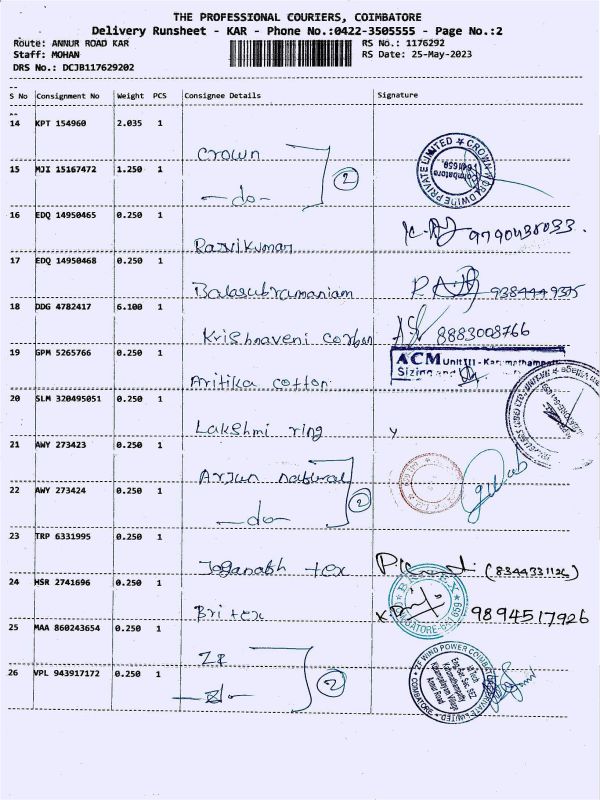 THE PROFESSIONAL COURIERS, COIMBATORE
Delivery Runsheet - KAR - Phone No.:0422-3505555 - Page No.:2
Route: ANNUR ROAD KAR RS No.: 1176292
Staff: MOHAN RS Date: 25-May-2023
DRS No.: DCJB117629202
S No Consignment No Weight PCS Consignee Details Signature
14 KPT 154960 2.035 1 Crown
15 MJI 15167472 1.250 1 -do- 2
16 EDQ 14950465 0.250 1 Ravikumar 9790438033.
17 EDQ 14950468 0.250 1 Balasubramaniam 9384449375
18 DDG 4782417 6.100 1 Krishnaveni corbon 8883008766
19 GPM 5265766 0.250 1 Aritika cotton ACM Unit III - Karumathampatti
Sizing and
20 SLM 320495051 0.250 1 Lakshmi ring
21 AWY 273423 0.250 1 Arjun natural
22 AWY 273424 0.250 1 -do- 2
23 TRP 6331995 0.250 1 Joganath tex (8344331126)
24 HSR 2741696 0.250 1 Britex 9894517926
25 MAA 860243654 0.250 1 ZF
26 VPL 943917172 0.250 1 -do- 2